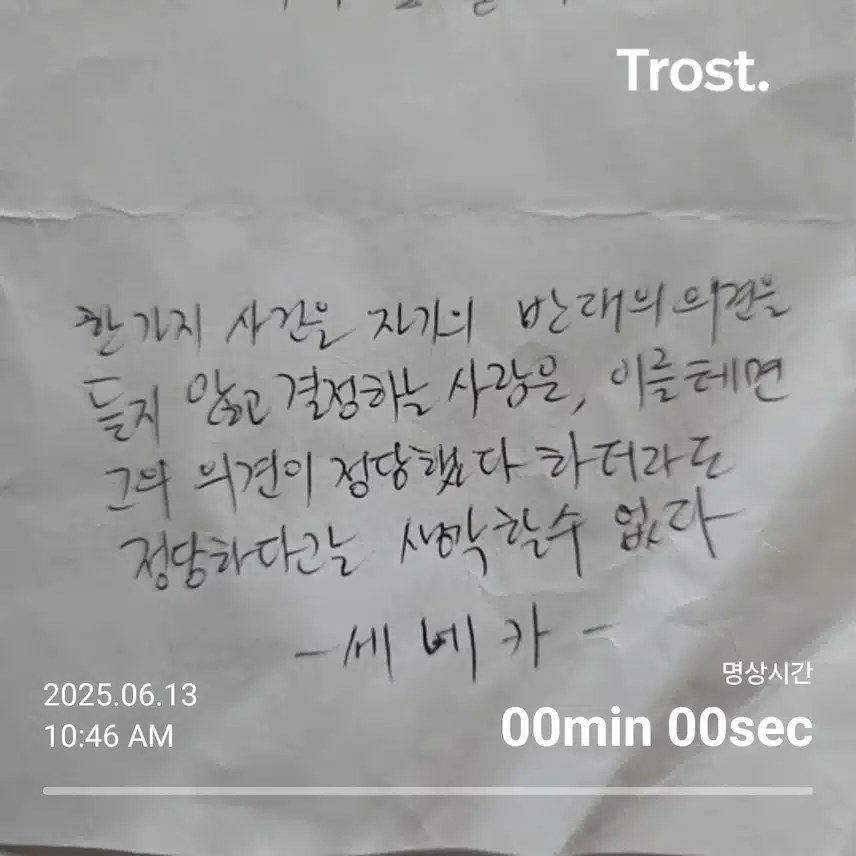 Trost.
한가지 사건을 자기의 반대의 의견을
듣지 않고 결정하는 사람은, 이를테면
그의 의견이 정당했다 하더라도
정당하다고는 생각할수 없다
- 세네카 -
명상시간
2025.06.13
00min 00sec
10:46 AM